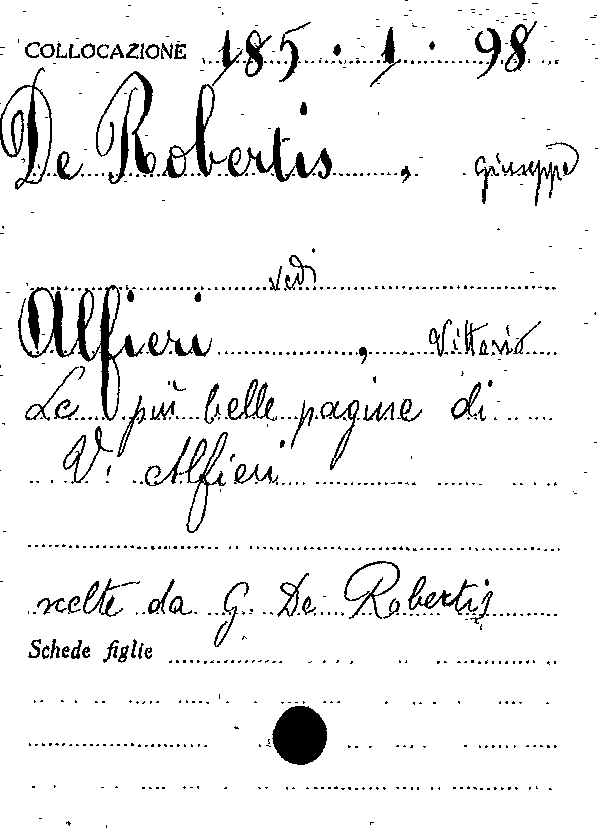 COLLOCAZIONE 185 · 1 · 98
De Robertis, Giuseppe
vedi
Alfieri, Vittorio
Le più belle pagine di
V. Alfieri
scelte da G. De Robertis
Schede figlie